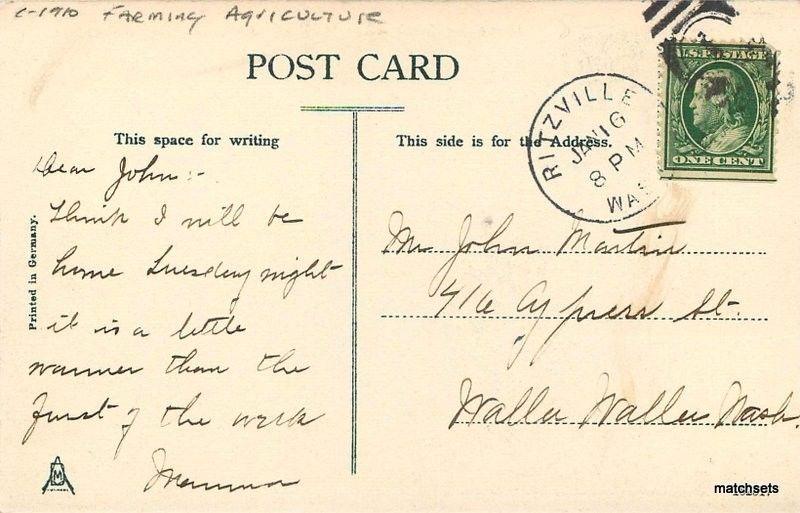 C-1910 FARMING AGRICULTURE
POST CARD
U.S. POSTAGE
ONE CENT
RITZVILLE
JAN 16
8 PM
WAS
This space for writing
This side is for the Address.
Dear John:-
think I will be
home Tuesday night
it is a little
warmer than the
first of the week
Mamma
Printed in Germany.
M
Mr John Martin
416 Cypress St.
Walla Walla Wash.
matchsets